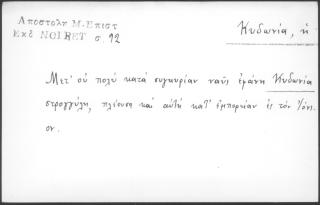 Αποστολη Μ-Επιστ
Εκδ NOIRET σ. 92
Κυδωνία, ἡ
Μετ' οὐ πολὺ κατὰ συγκυρίαν ναῦς ἐφάνη Κυδωνία
στρογγύλη, πλέουσα καὶ αὐτὴ κατ' ἐμπορίαν ἐς τὸν
ον.